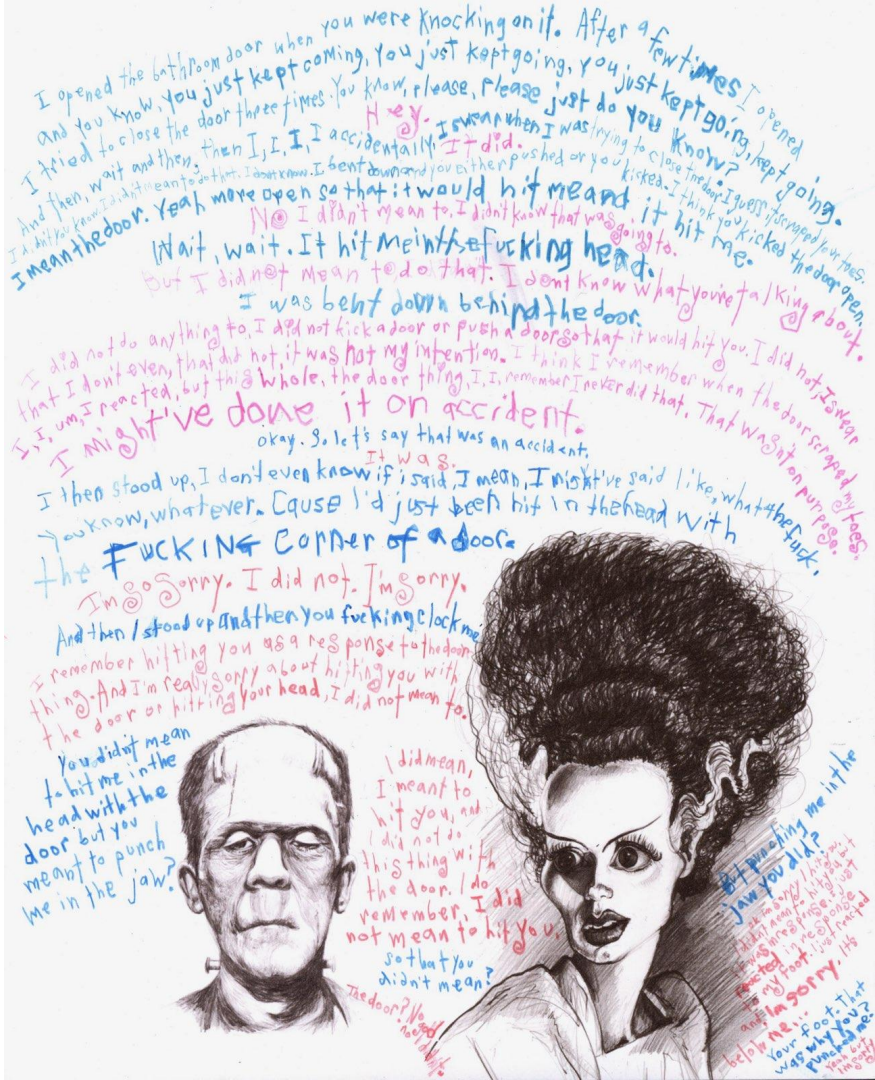 I opened the bathroom door when you were knocking on it. After a few times I opened
and you know, you just kept coming, you just kept going, you just kept going, kept going.
I tried to close the door three times. You know, please, please just do you know?
Hey.
And then, wait and then, then I, I, I, I accidentally, I swear when I was trying to close the door I guess it scraped your toes.
It did.
I didn't you know, I didn't mean to do that. I dont know. I bent down and you either pushed or you kicked. I think you kicked the door open.
I mean the door. Yeah more open so that it would hit me and it hit me.
No I didn't mean to, I didn't know that was going to.
Wait, wait. It hit me in the fucking head.
But I did not mean to do that. I dont know what you're talking about.
I was bent down behind the door.
I did not do anything to, I did not kick a door or push a door so that it would hit you. I did not, I swear
that I don't even, that did not, it was not my intention. I think I remember when the door scraped my toes.
I, I, um, I reacted, but this whole, the door thing, I, I, remember I never did that. That wasn't on purpose.
I might've done it on accident.
okay. So let's say that was an accident.
It was.
I then stood up, I don't even know if i said, I mean, I might've said like, what the fuck.
You know, whatever. Cause I'd just been hit in the head with
the FUCKING Corner of a door.
I'm so Sorry. I did not. I'm sorry.
And then I stood up and then you fucking clock me
I remember hitting you as a response to the door
thing. And I'm really sorry about hitting you with
the door or hitting your head, I did not mean to.
You didn't mean
to hit me in the
head with the
door but you
meant to punch
me in the jaw?
I did mean,
I meant to
hit you, and
I did not do
this thing with
the door. I do
remember, I did
not mean to hit you.
so that you
didn't mean?
The door? No
But punching me in the
jaw you did?
ok im sorry I hit you
didnt mean to hit you, but
it was in response. I just
reacted in response
to my foot. I just reacted
and, Im sorry. Its
below me...
Your foot. That
was why you
punched me?
Yeah but
Im sorry